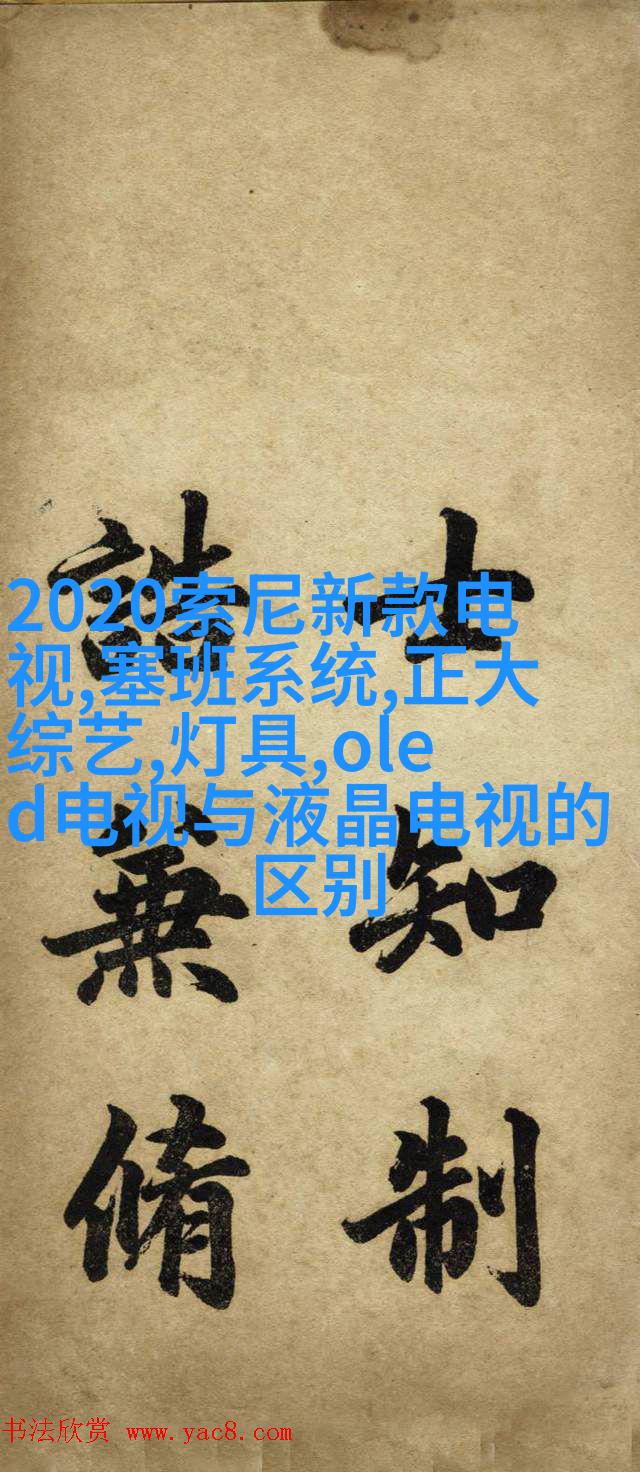 士知制
誥兼脩
2020索尼新款电
视,塞班系统,正大
综艺,灯具,ole
d电视与液晶电视的
区别
书法欣赏 www.yac8.com